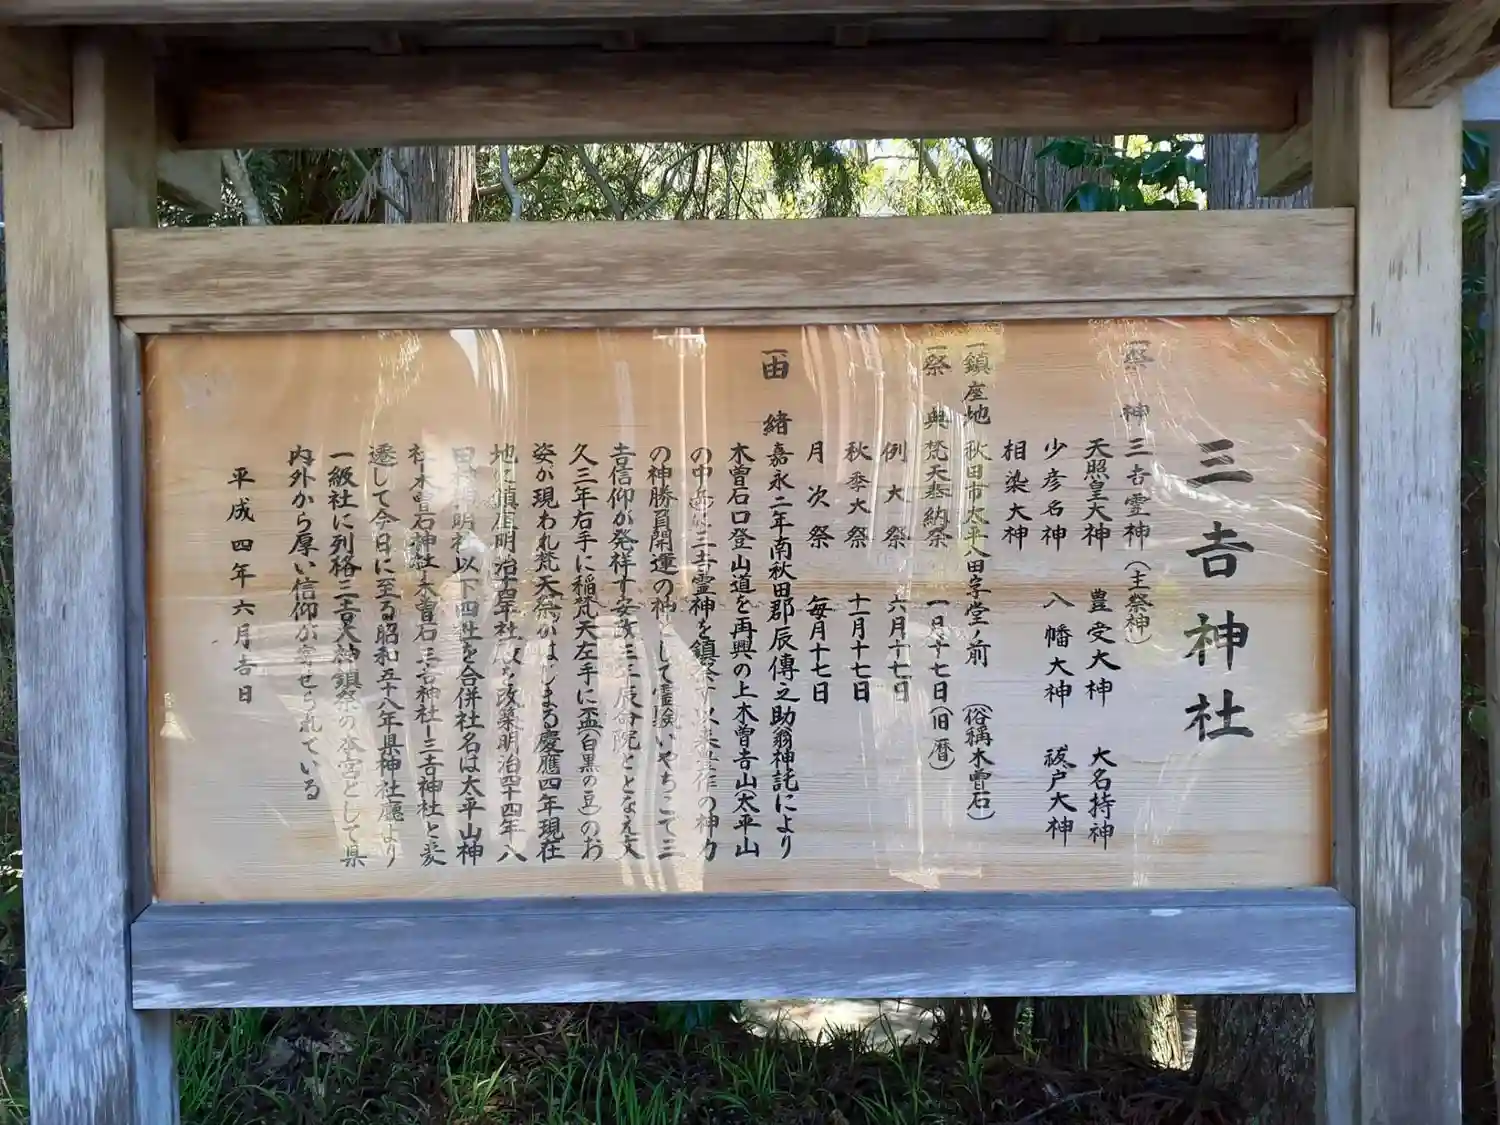 三吉神社
一祭神 三吉霊神（主祭神）
天照皇大神 豊受大神 大名持神
少彦名神 八幡大神 祓戸大神
相染大神
一鎮座地 秋田市太平八田字堂ノ前（俗稱木曽石）
一祭典 梵天奉納祭 一月十七日（旧暦）
例大祭 六月十七日
秋季大祭 十一月十七日
月次祭 毎月十七日
一由緒 嘉永二年南秋田郡辰傳之助翁神託により
木曽石口登山道を再興の上木曽吉山（太平山
の中 に三吉霊神を鎮祭す以来 作の神力
の神勝負開運の神として霊験いやちこで三
吉信仰が発祥す安政三三辰命院ととなえ文
久三年右手に稲梵天左手に盃（白黒の豆）のお
姿が現われ梵天祭がはじまる慶應四年現在
地に鎮座明治 年社殿を改築明治四十四年八
田村神明社以下四社を合併社名は太平山神
社－木曽石神社－木曽石三吉神社－三吉神社と変
遷して今日に至る昭和五十八年県神社廳より
一級社に列格三吉大神鎮祭の本宮として県
内外から厚い信仰が寄せられている
平成四年六月吉日